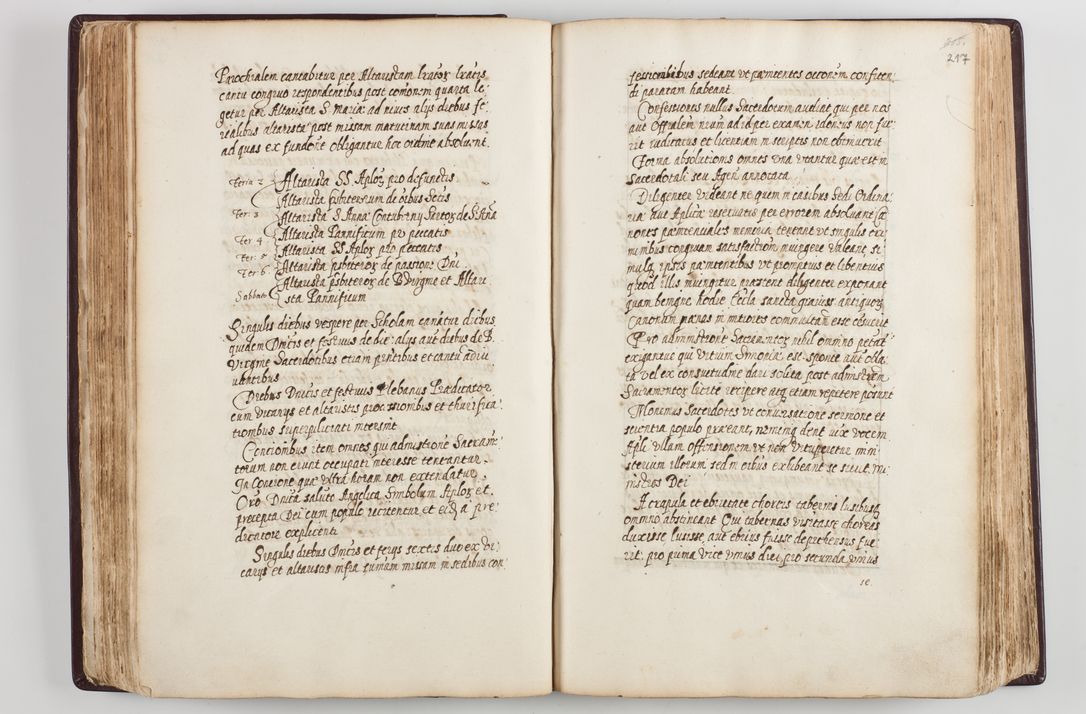 Parochialem cantabitur per Altaristam
cantu congruo respondentibus post comonem quarta le
getur per Altaristā S. Mariæ ad nives alys diebus fe
realibus altaristæ post missam matutinam suas missas
ad quas ex fundone obligantur hoc ordine absoluent.
Feria 2 Altarista SS Aplorz pro defunctis
Altarista psbiterorum de oībus Sctis
Fer. 3 Altarista S Annæ Contuberny
Fer. 4 Altarista Pannificum pro peccatis
Fer. 5 Altarista SS Aplorz pro peccatis
Fer 6 Altarista psbiterorz de passione Dni
Sabbato Altarista psbiterorz de B Virgine et Altari
sta Pannificum
Singulis diebus vespere per Scholam canātur diebus
quidem Dnicis et festiuis de die alys aut diebus de B.
Virgine Sacerdotibus etiam pntibus et cantu adiu
uantibus
Diebus Dnicis et festiuis Plebanus Prædicator
cum vicarys et altaristis processionibus et thurifica
tionibus superpiliciati intersint
Concionibus item omnes qui admistrone Sacram
torum non erunt occupati interesse teneantur
In Concione quæ vltra horam non extendatur
Oro Dnica salute Angelica Simbolum Aplorz et
precepta Dei cum populo recitentur et a pre
dicatore explicentr
Singulis diebus Dnicis et ferys sextis duo ex vi
carys et altaristis infra sumam missam in sedibus con
217
fessionalibus sedeant vt pœnitentes occonem confiten
di paratam habeant
Confessiones nullus Sacerdotum audiat qui per nos
aut Offialem nrum ad id per examen idoneus non fue
rit iudicatus et licentiam in scriptis non obtinuerit
Forma absolutionis omnes vna vtantur quæ est in
Sacerdotali seu Agen annotata
Diligenter videant ne quem in casibus Sedi Ordina
riæ aut Aplicæ reseruatis per errorem absoluant Ca
nones pœnitentiales memoria teneant vt singulis cri
minibus congruam satisfactionem iniungere valeant si
mulqz ipsis pœnitentibus vt promptius et libentius
quod illis iniungitur præstent diligenter exponant
quam benigne hodie Eccla sancta grauiss antiquorz
Canonum pænas in mitiores commutatas esse
Pro administrone Sacramentorz nihil omnino petāt
exigantue qui vitium Simoniæ est sponte aut obla
ta vel ex consuetudine dari solita post admistrem
Sacramentorz licitè recipere atqz etiam repetere poterunt
Monemus Sacerdotes vt conuersatione sermone et
scientia populo præeant, neminiqz dent iux vocem
Apli vllam offensionem vt non vituperetur mini
sterium illorum sed in oībus exhibeant se sicut mi
nistros Dei
A crapula et ebrietate choreis tabernis lusibusqz
omnino abstineant Qui tabernas visitasse choreas
duxisse lusisse aut ebrius fuisse deprehensus fue
rit, pro prima vice vnius diei, pro secunda vnius